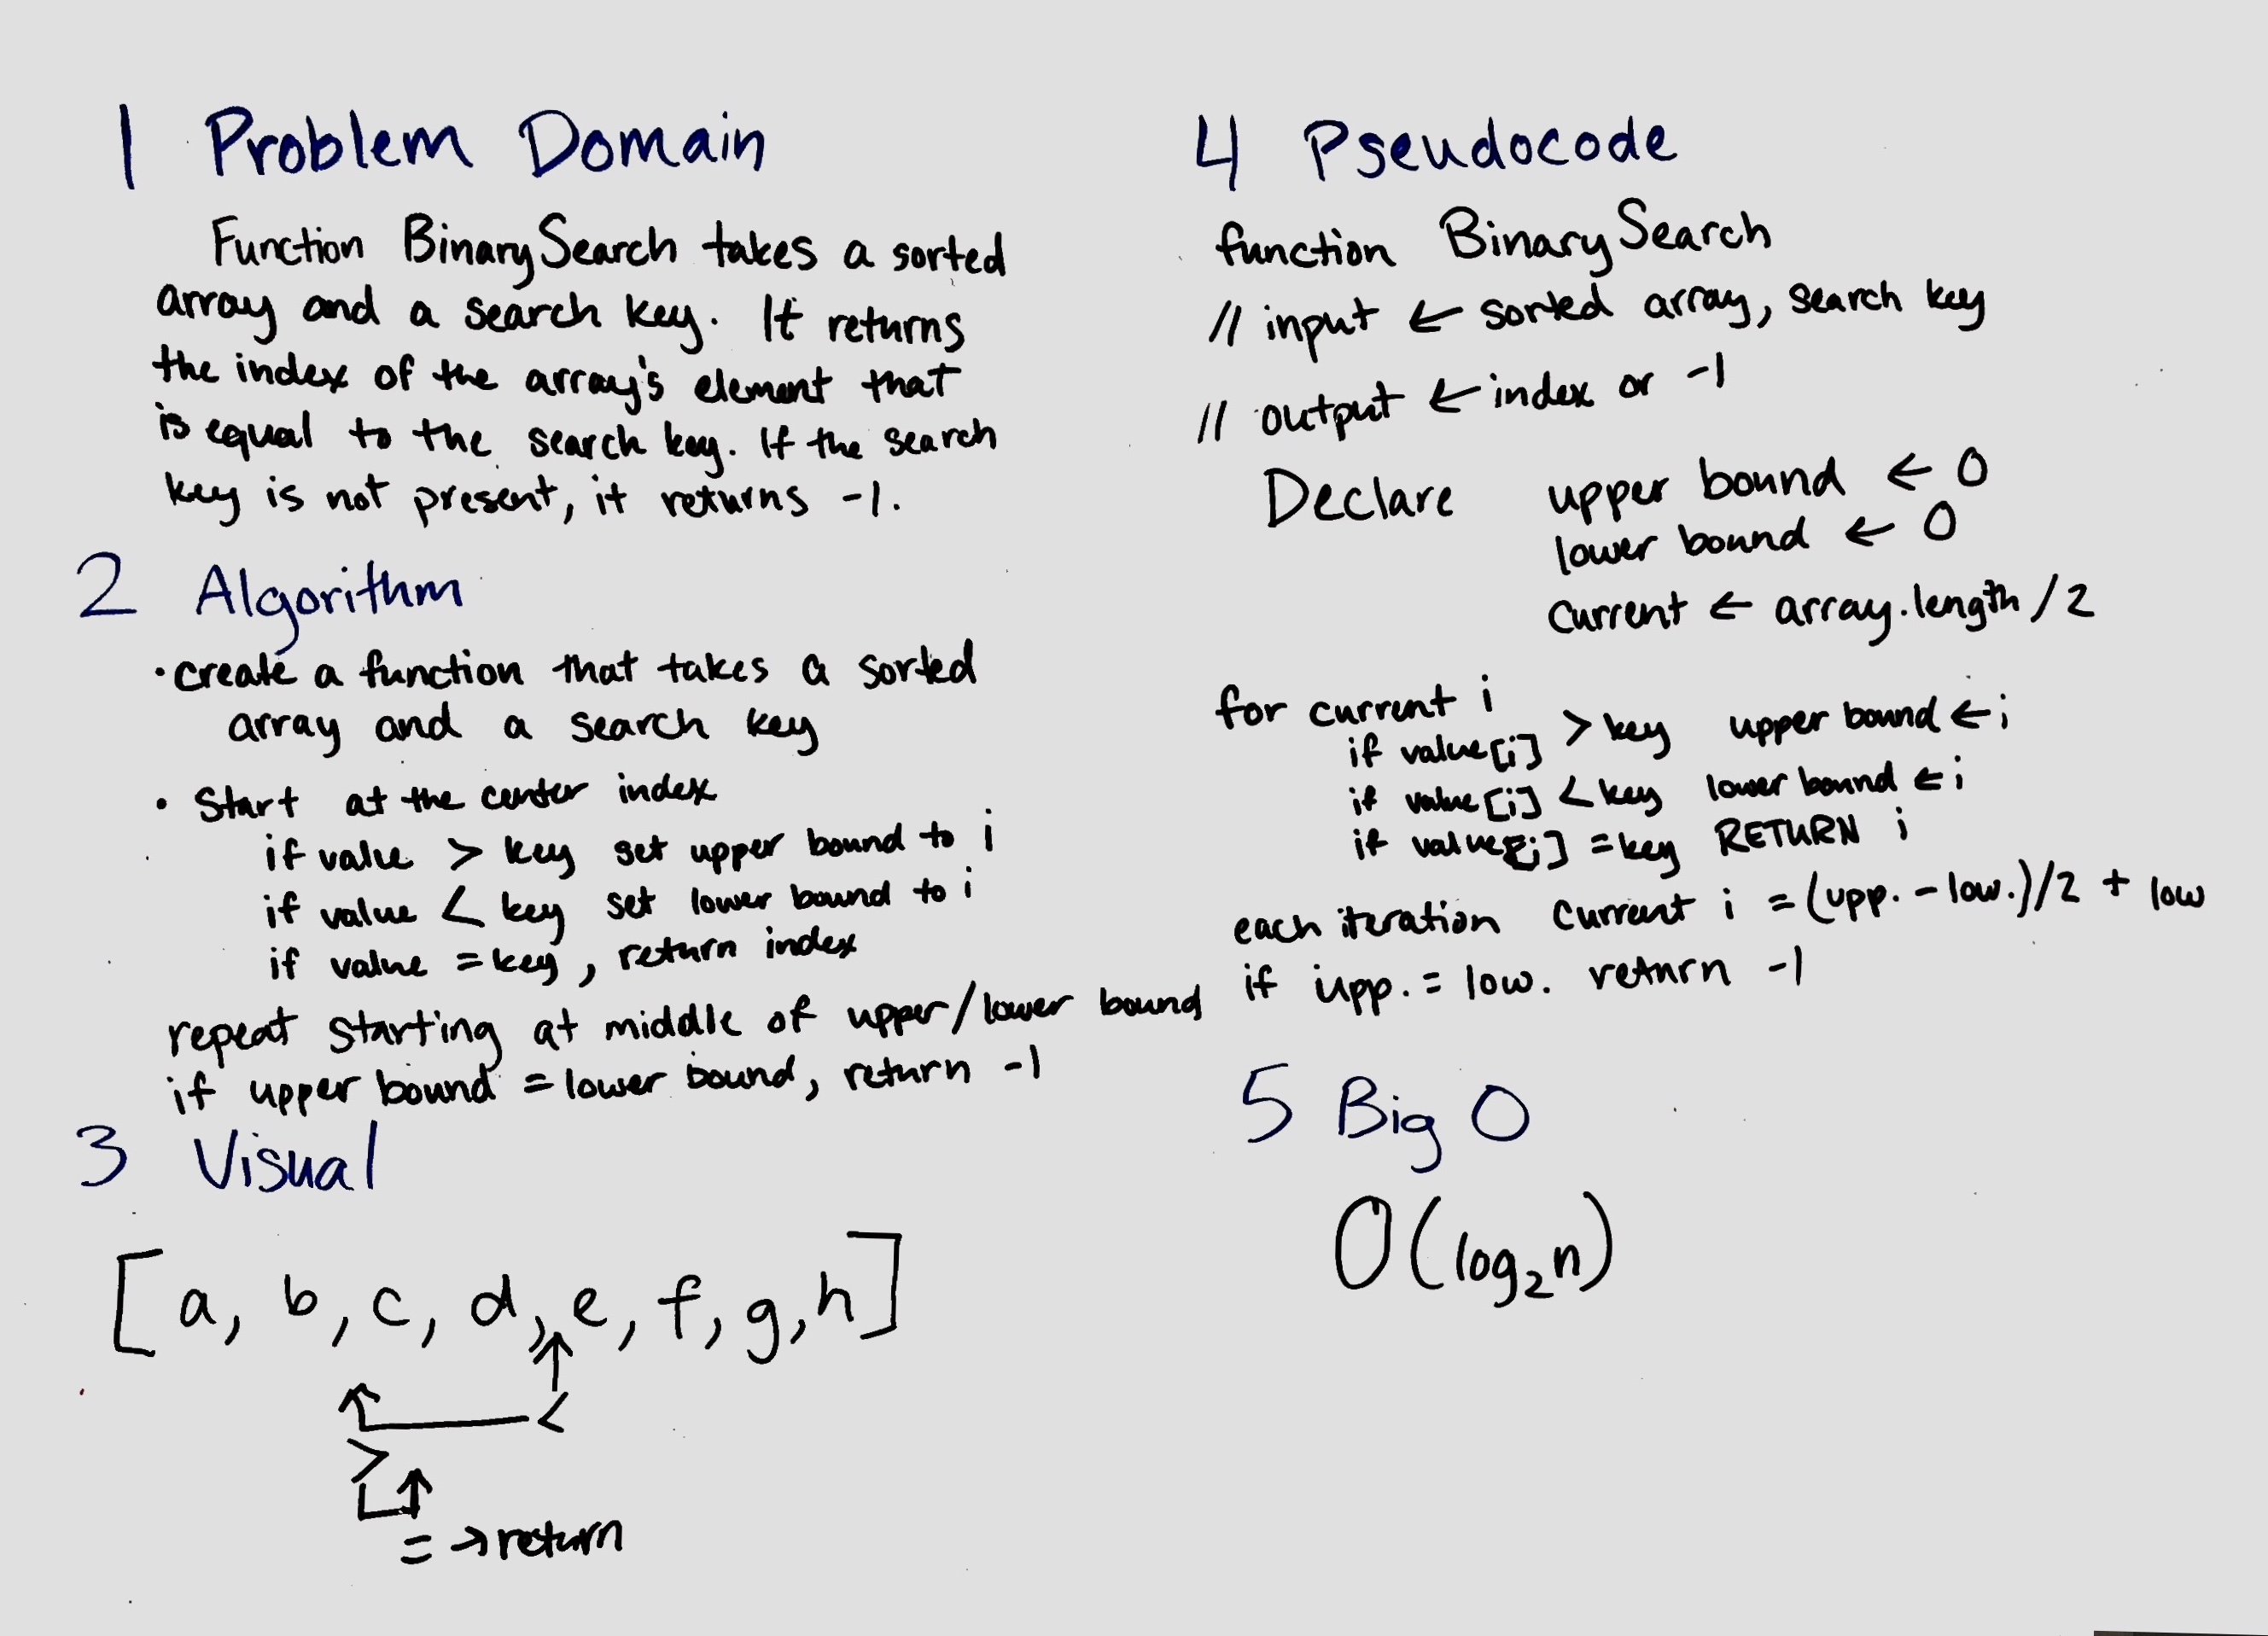 1 Problem Domain
Function BinarySearch takes a sorted
array and a search key. It returns
the index of the array's element that
is equal to the search key. If the search
key is not present, it returns -1.
2 Algorithm
• create a function that takes a sorted
array and a search key
• Start at the center index
if value > key set upper bound to i
if value < key set lower bound to i
if value = key, return index
repeat starting at middle of upper/lower bound
if upper bound = lower bound, return -1
3 Visual
[a, b, c, d, e, f, g, h]
<
>
= → return
4 Pseudocode
function BinarySearch
// input ← sorted array, search key
// output ← index or -1
Declare upper bound ← 0
lower bound ← 0
current ← array.length /2
for current i
if value[i] > key upper bound ← i
if value[i] < key lower bound ← i
if value[i] = key RETURN i
each iteration current i = (upp. - low.)/2 + low
if upp. = low. return -1
5 Big O
O(log₂n)